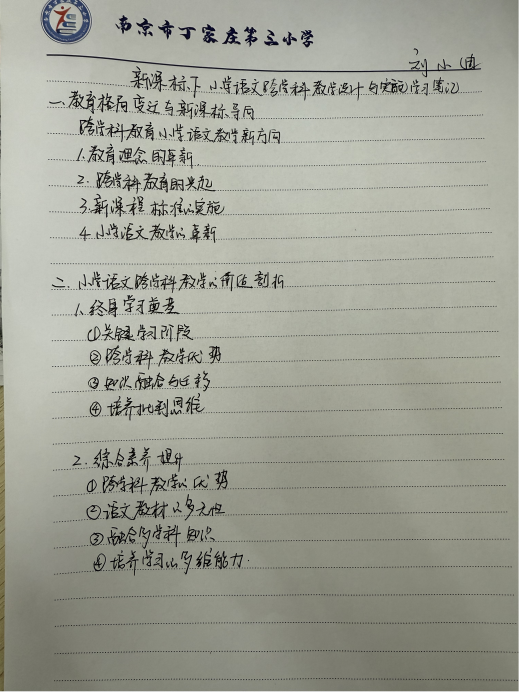 南京市丁家庄第三小学
刘小迪
新课标下小学语文跨学科教学设计与实施学习笔记
一、教育格局变迁与新课标导向
跨学科教育小学语文教学新方向
1.教育理念的革新
2.跨学科教育的兴起
3.新课程标准的实施
4.小学语文教学的革新
二、小学语文跨学科教学的价值剖析
1.终身学习奠基
①关键学习阶段
②跨学科教学优势
③知识融合与迁移
④培养批判思维
2.综合素养提升
①跨学科教学的优势
②语文教材的多元性
③融合多学科知识
④培养学习的多维能力.